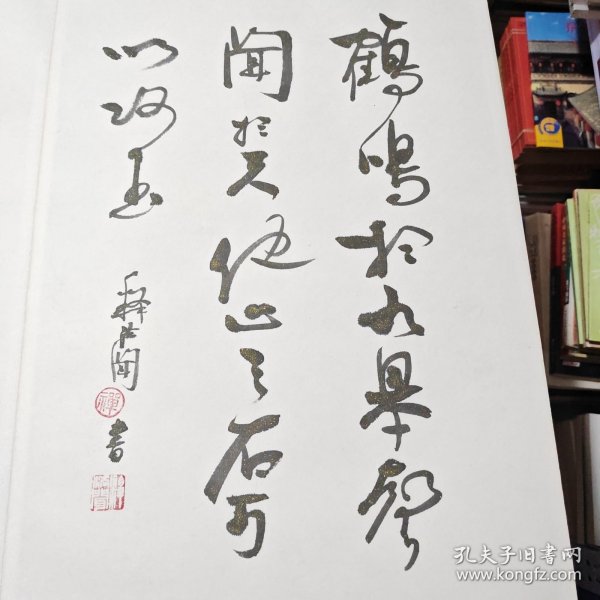 鶴鳴於九皋聲
聞於天他山之石可
以攻玉
釋聞
禪
書
孔夫子旧书网
www.kongfz.com